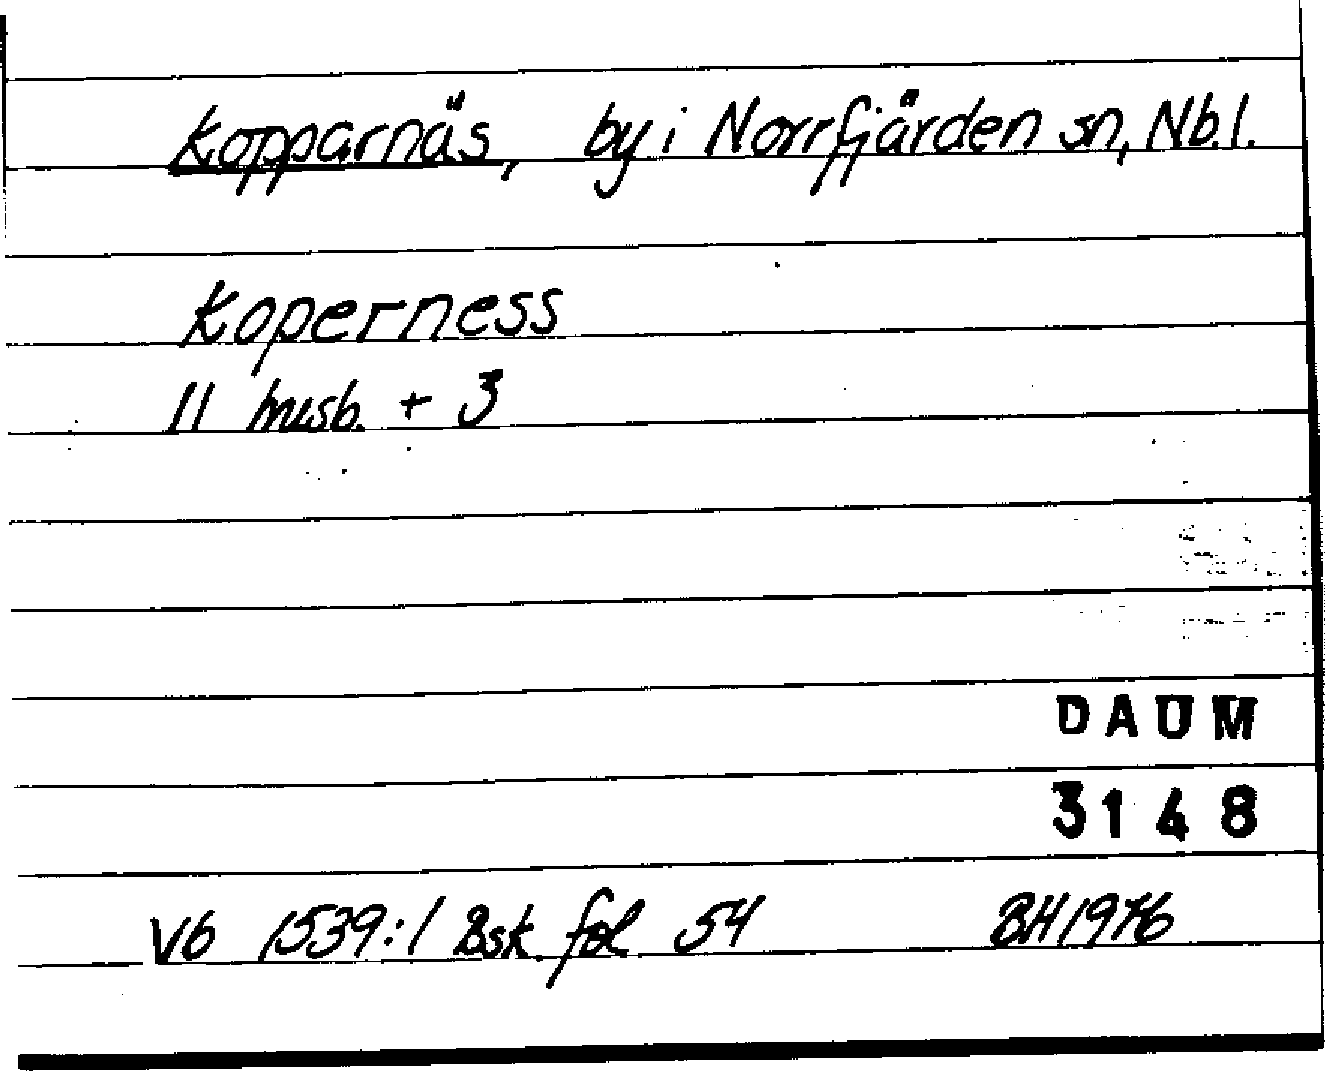 Kopparnäs, by i Norrfjärden sn, Nb.l.
Koperness
11 husb. + 3
DAUM
3148
Vb 1539:1 Bsk. fol 54 BH 1976